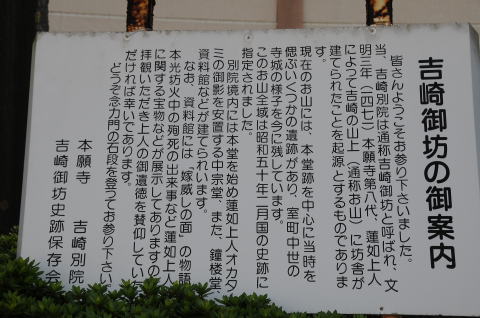 吉崎御坊の御案内
皆さんようこそお参り下さいました。
当、吉崎別院は通称吉崎御坊と呼ばれ、文
明三年（一四七一）本願寺第八代、蓮如上人
によって吉崎の山上（通称お山）に坊舎が
建てられたことを起源とするものでありま
す。
現在のお山には、本堂跡を中心に当時を
偲ぶいくつかの遺跡があり、室町中世の
寺城の様子を今に残しています。
このお山全域は昭和五十年二月国の史跡に
指定されました。
別院境内には本堂を始め蓮如上人オカタ
三の御影を安置する中宗堂、また、鐘楼堂、
資料館などが建てられいます。
なお、資料館には「嫁威しの面」の物語
本光坊火中の殉死の出来事など蓮如上人
に関する宝物などが展示してありますの
拝観いただき上人の御遺徳を賛仰してい
だければ幸いであります。
どうぞ念力門の石段を登ってお参り下さい
本願寺 吉崎別院
吉崎御坊史跡保存会